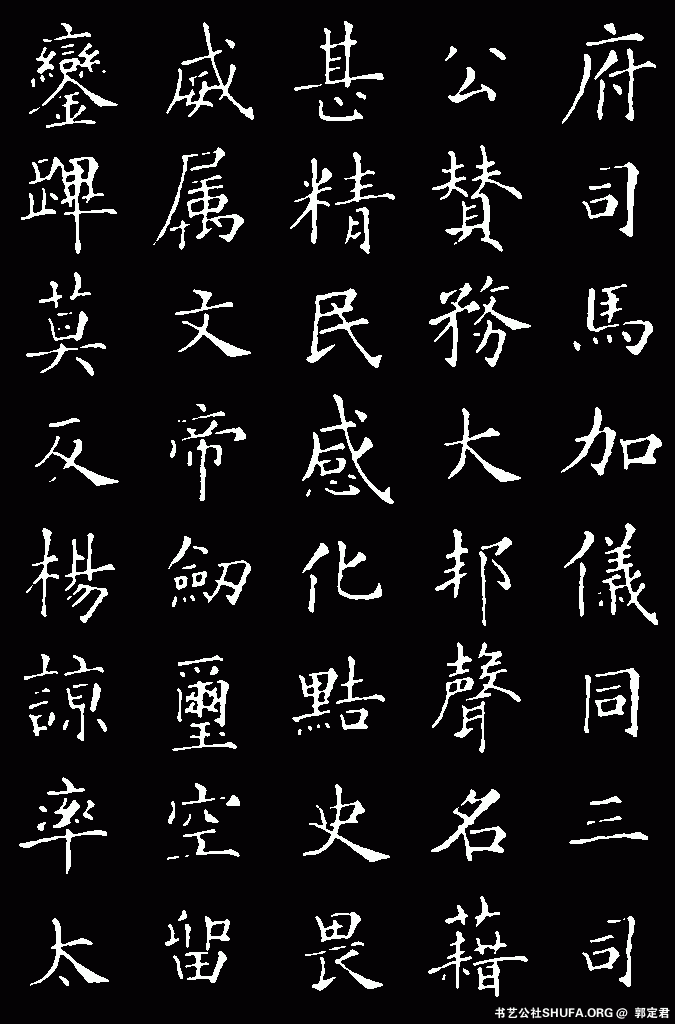 府司馬加儀同三司
公賛務大邦聲名藉
甚精民感化黠史畏
威属文帝劒璽空留
鑾蹕莫反楊諒率太
书艺公社SHUFA.ORG @ 郭定君